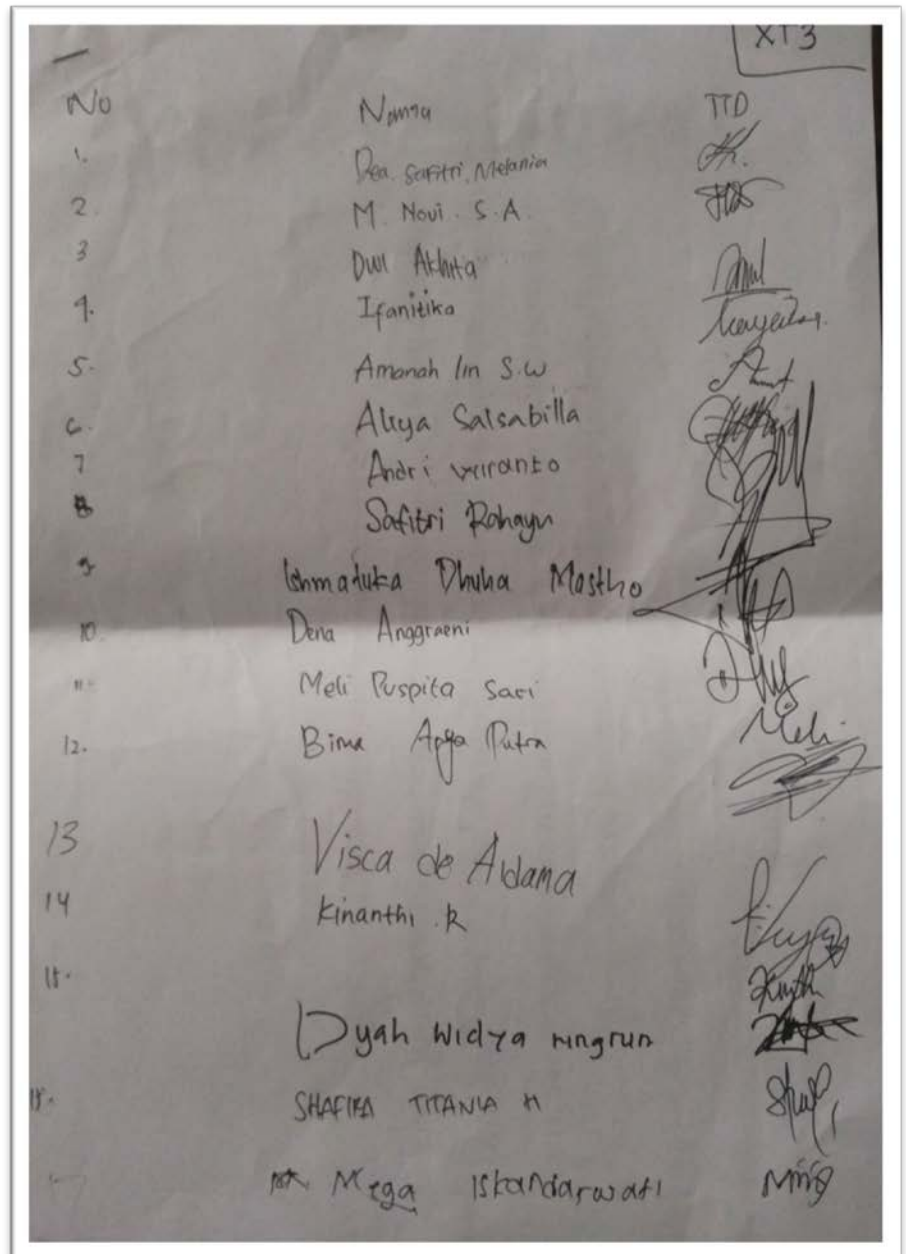 XT3
No Nama TTD
1. Dea. Safitri. Melania
2. M. Novi. S.A.
3 Dwi Akhita
4. Ifanitika
5. Amanah Iin S.W
6. Aliya Salsabilla
7 Andri wiranto
8 Safitri Rahayu
9. Ishmatuka Dhuha Mastho
10. Dena Anggraeni
11. Meli Puspita Sari Meli
12. Bima Putra
13 Visca de Aldama
14 Kinanthi .R
15. Dyah Widya ningrum
SHAFIRA TITANIA H
Mega Iskandarwati